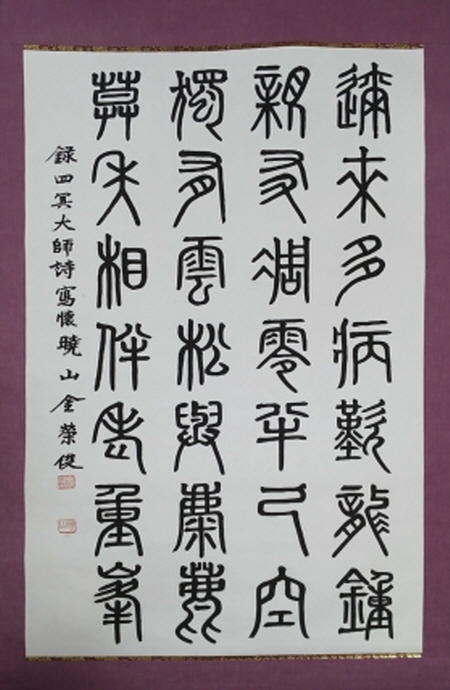 邇來多病歎龍鍾
親友凋零半已空
獨有雲松與麋鹿
莫失相伴老重峯
錄四冥大師詩寫懷曉山金榮俊